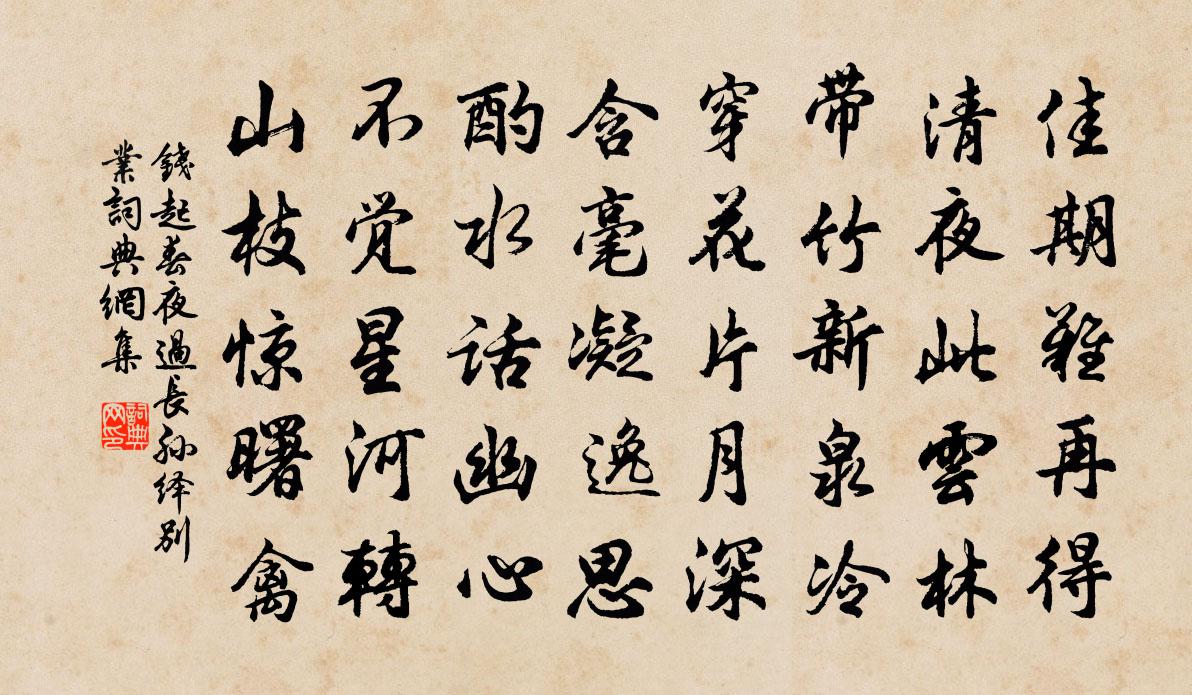 佳期難再得
清夜此雲林
带竹新泉冷
穿花片月深
含毫凝逸思
酌水话幽心
不觉星河轉
山枝惊曙禽
錢起春夜過長孙绎别
業詞典網集
詞典网印